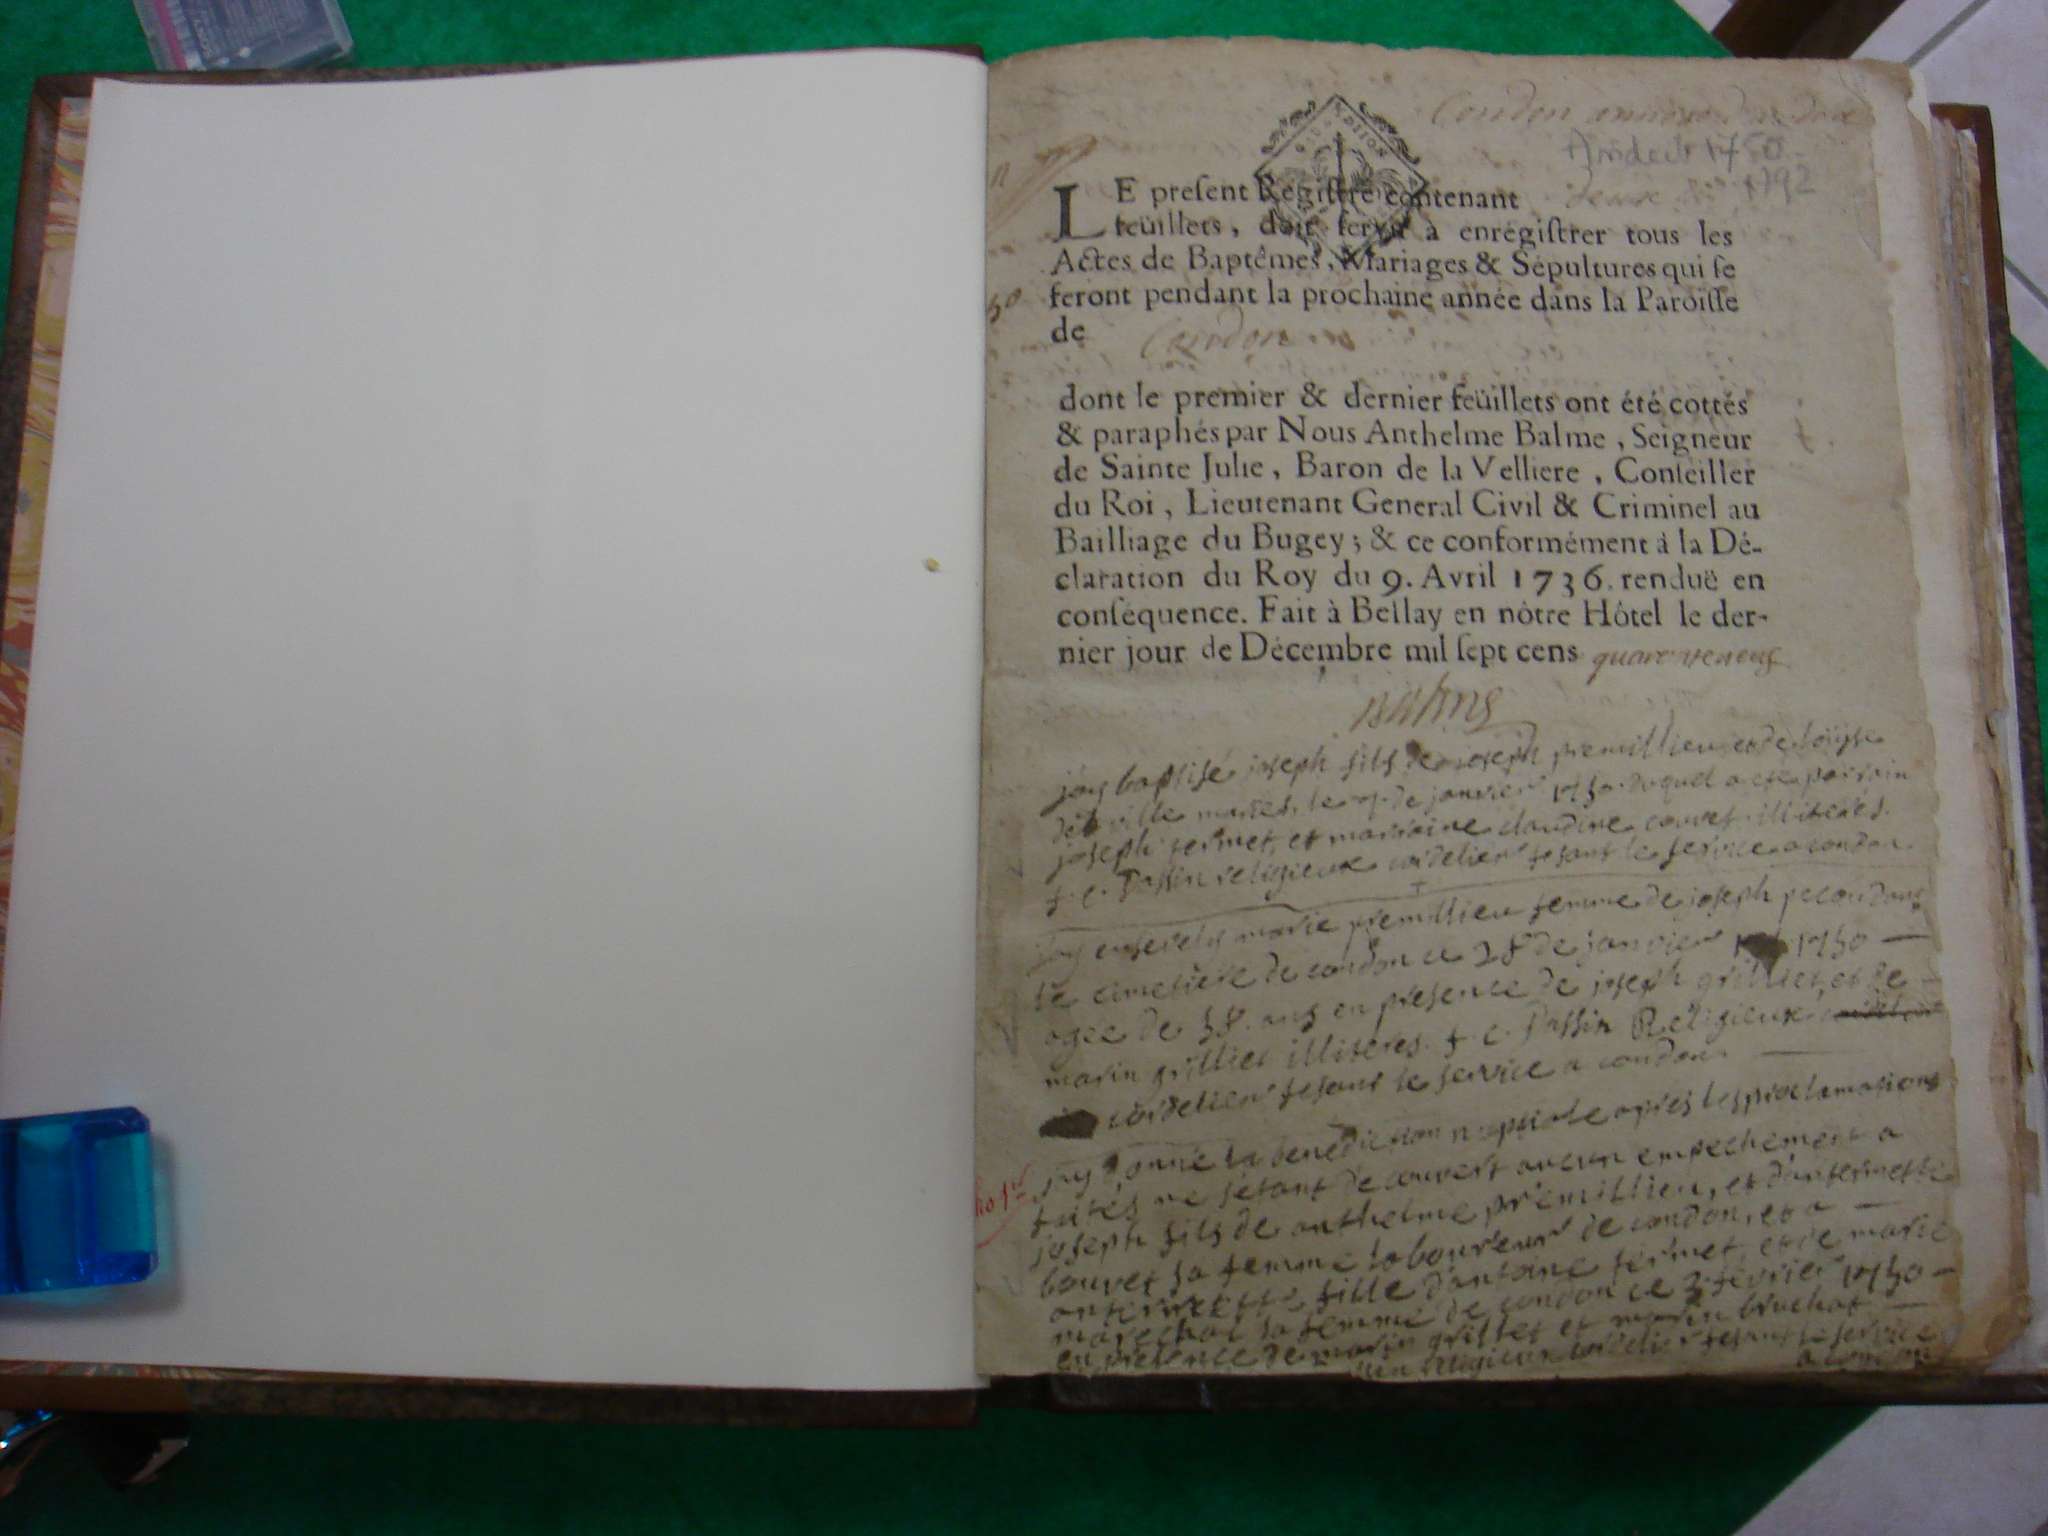 Condon
Andert 1750
1792
LE preſent Regiſtre contenant
feüillets, doit ſervir à enrégiſtrer tous les
Actes de Baptêmes, Mariages & Sépultures qui ſe
feront pendant la prochaine année dans la Paroiſſe
de Condon
dont le premier & dernier feüillets ont été cottés
& paraphés par Nous Anthelme Balme, Seigneur
de Sainte Julie, Baron de la Velliere, Conſeiller
du Roi, Lieutenant General Civil & Criminel au
Bailliage du Bugey; & ce conformément à la Dé-
claration du Roy du 9. Avril 1736. renduë en
conſéquence. Fait à Bellay en nôtre Hôtel le der-
nier jour de Décembre mil ſept cens quaranteneuf
Balme
j'ay baptisé joseph fils de joseph premillieu et de
ville mariés, le de janvier 1750 duquel a ete parrain
joseph termet, et marraine claudine illiteres.
f. c. Passin religieux cordelier fesant le service a condon
j'ay ensevely marie premillieu femme de joseph dans
le cimetiere de condon ce 28 de janvier 1750
agee de 38. ans en presence de joseph grilliet, et de
marin grilliet illiteres. f. c. Passin Religieux
cordelier fesant le service a condon
j'ay donné la benediction nuptiale apres les proclamations
faites ne setant decouvert aucun empechement a
joseph fils de anthelme premillieu, et d'antermette
bouvet sa femme laboureur de condon, et a
antermette fille d'antoine termet, et de marie
marechal sa femme de condon ce 3 février 1750
en presence de marin grillet et marin bruchat
religieux cordelier fesant le service
a condon